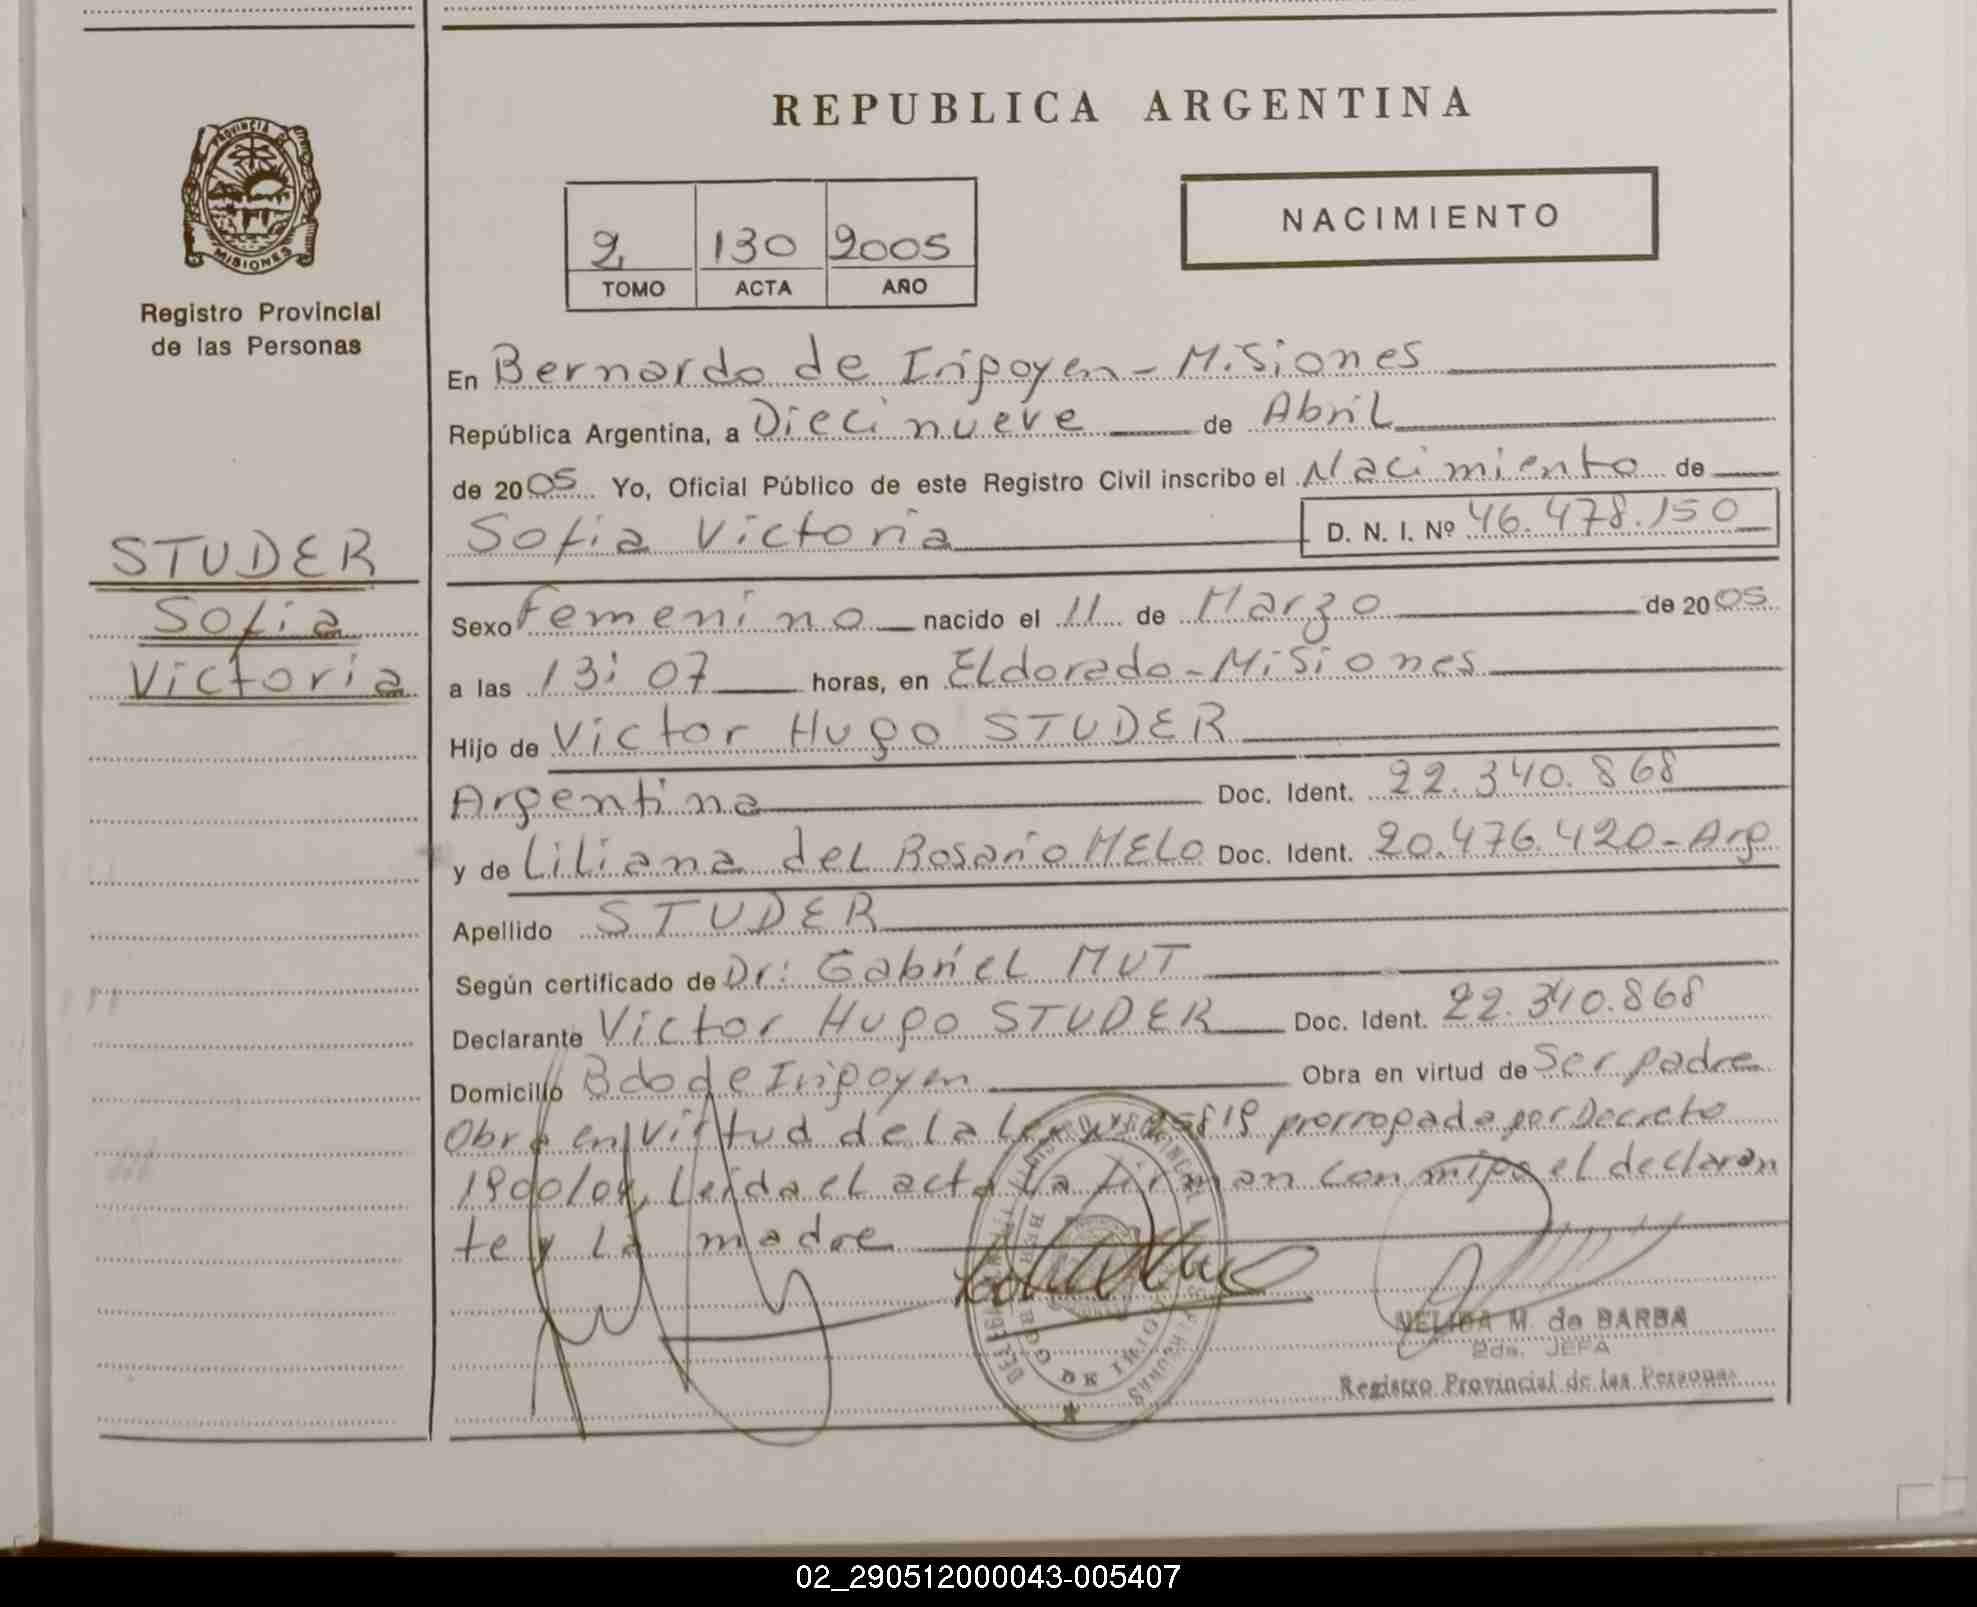 REPUBLICA ARGENTINA
PROVINCIA DE
MISIONES
Registro Provincial
de las Personas
2 130 2005
TOMO ACTA AÑO
NACIMIENTO
En Bernardo de Irigoyen - Misiones
República Argentina, a Dieci nueve de Abril
de 2005 Yo, Oficial Público de este Registro Civil inscribo el Nacimiento de
Sofia Victoria D. N. I. Nº 46.478.150
STUDER
Sofia
Victoria
Sexo Femenino nacido el 11 de Marzo de 2005
a las 13:07 horas, en Eldorado - Misiones
Hijo de Victor Hugo STUDER
Argentina Doc. Ident. 22.340.868
y de Liliana del Rosario MELO Doc. Ident. 20.476.420 - Arg
Apellido STUDER
Según certificado de Dr: Gabriel MUT
Declarante Victor Hugo STUDER Doc. Ident. 22.340.868
Domicilio Bdo de Irigoyen Obra en virtud de Ser padre
Obra en virtud de la Ley 25819 prorrogada por Decreto
1900/04, Leida el acta la firman conmigo el declaran
te y la madre
NELIDA M. de BARBA
2da. JEFA
Registro Provincial de las Personas
02_290512000043-005407